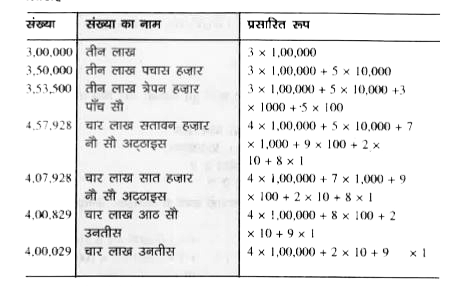 संख्या संख्या का नाम प्रसारित रूप
3,00,000 तीन लाख 3 × 1,00,000
3,50,000 तीन लाख पचास हज़ार 3 × 1,00,000 + 5 × 10,000
3,53,500 तीन लाख त्रेपन हज़ार 3 × 1,00,000 + 5 × 10,000 +3
पाँच सौ × 1000 + 5 × 100
4,57,928 चार लाख सतावन हज़ार 4 × 1,00,000 + 5 × 10,000 + 7
नौ सौ अट्ठाइस × 1,000 + 9 × 100 + 2 ×
10 + 8 × 1
4,07,928 चार लाख सात हज़ार 4 × 1,00,000 + 7 × 1,000 + 9
नौ सौ अट्ठाइस × 100 + 2 × 10 + 8 × 1
4,00,829 चार लाख आठ सौ 4 × 1,00,000 + 8 × 100 + 2
उनतीस × 10 + 9 × 1
4,00,029 चार लाख उनतीस 4 × 1,00,000 + 2 × 10 + 9 × 1